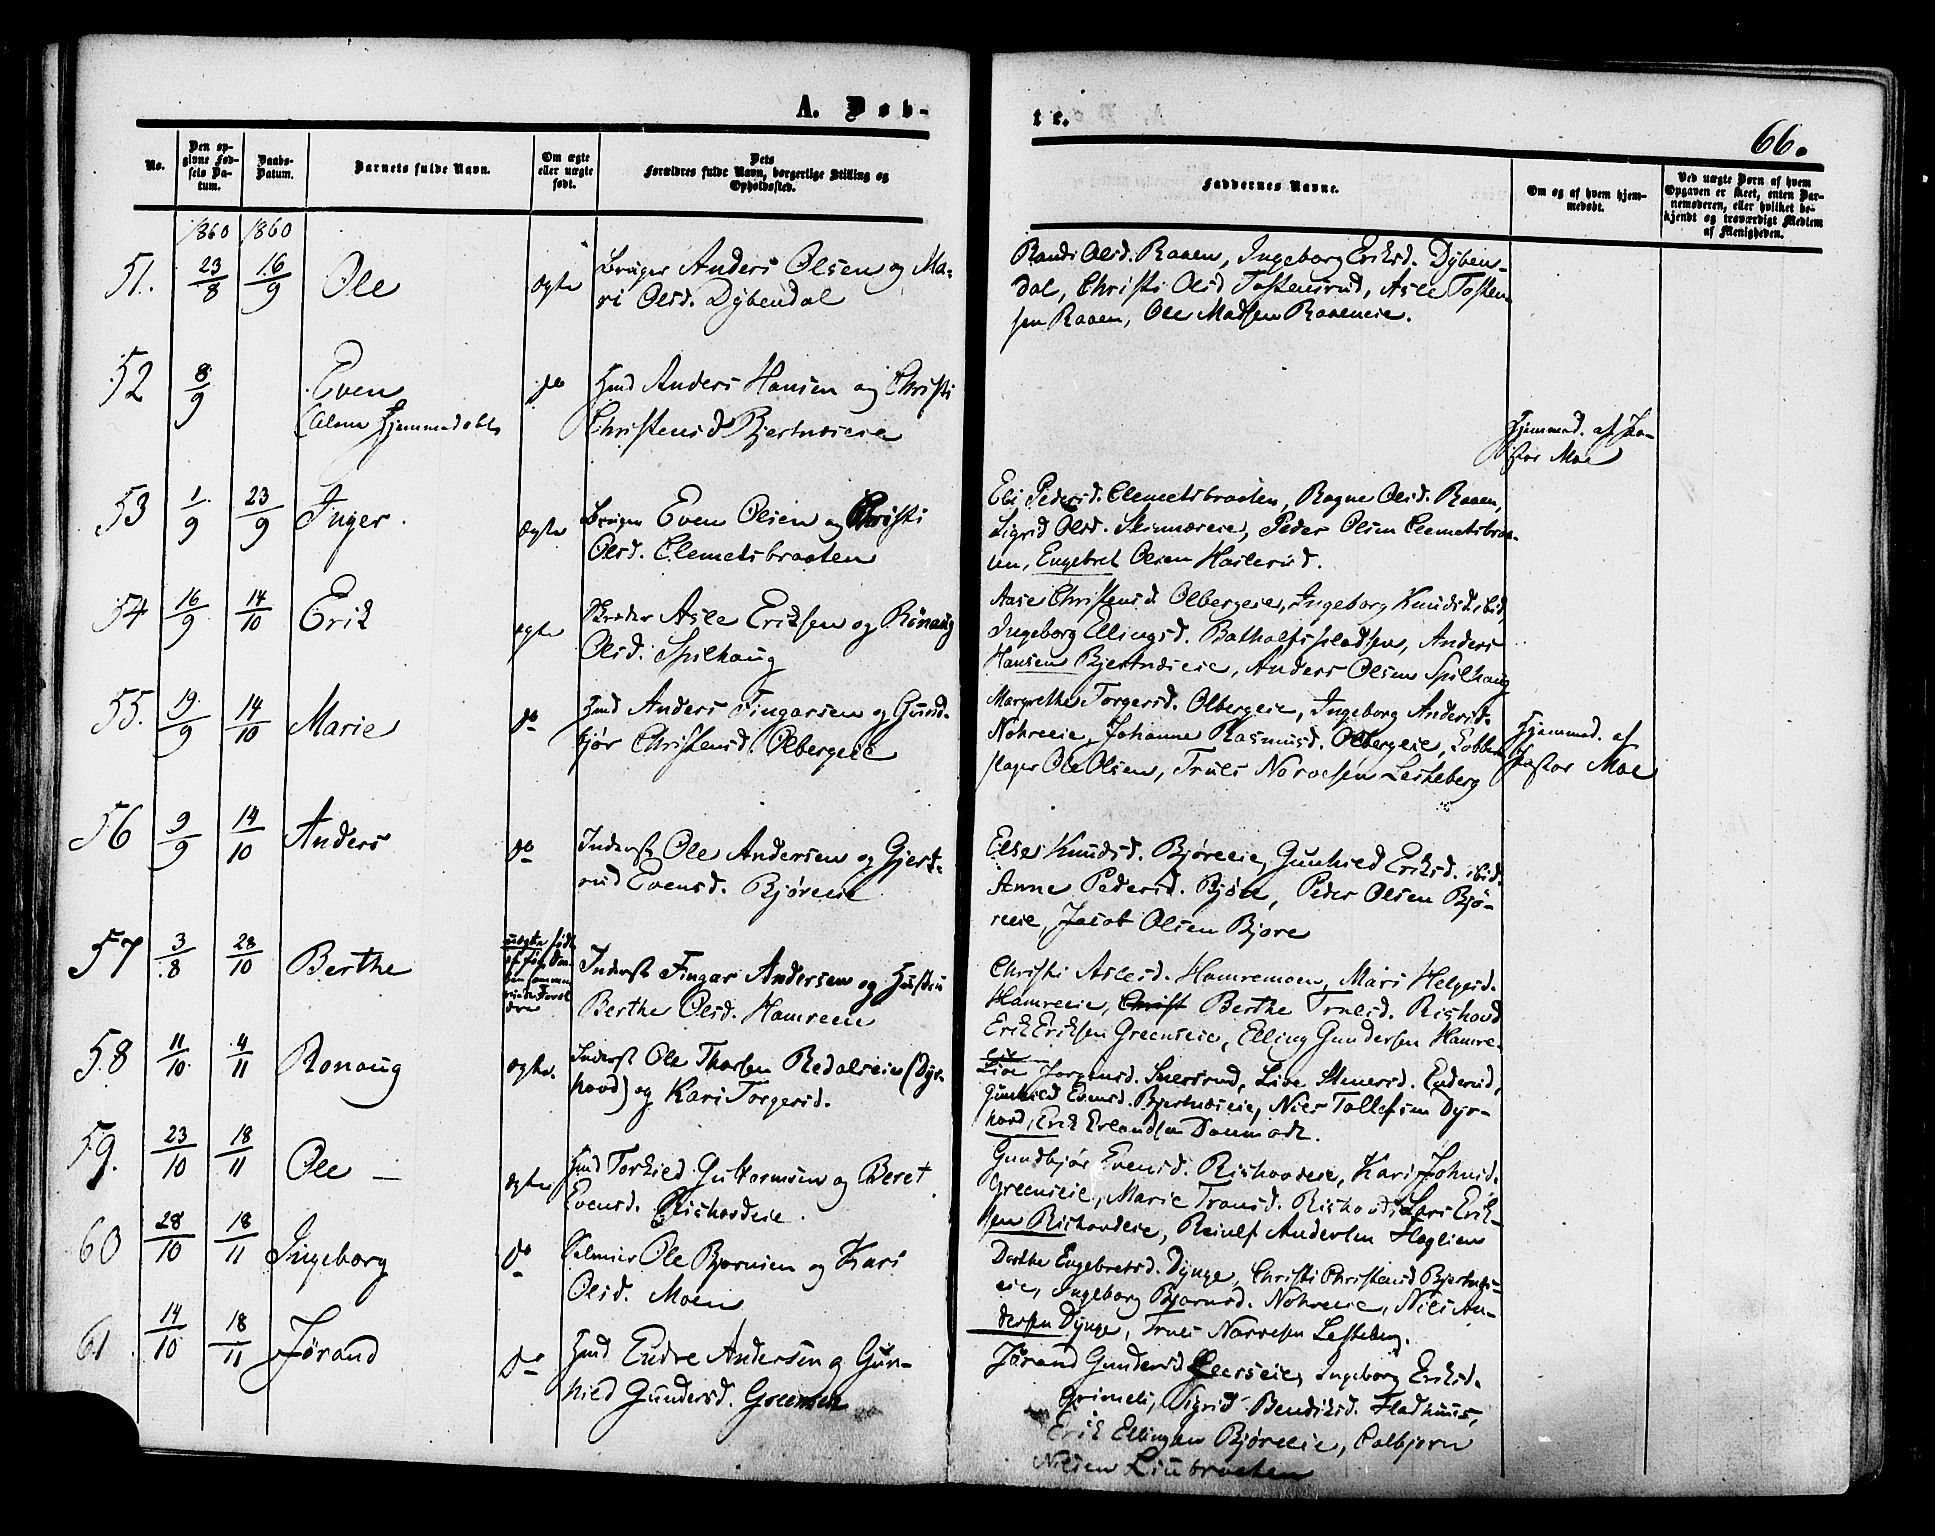 A. Døb-
te.
66.
No.
Den opgivne Fødsels Datum.
Daabs-Datum.
Barnets fulde Navn.
Om ægte eller uægte født.
Dets Forældres fulde Navn, borgerlige Stilling og Opholdssted.
Faddernes Navne.
Om og af hvem hjemmedøbt.
Ved uægte Børn af hvem Opgaven er skeet, enten Barnemoderen, eller hvilket bekjendt og troværdigt Medlem af Menigheden.
1860 1860
51. 23/8 16/9 Ole ægte Bruger Anders Olsen og Ma-
ri Olsd. Dybendal
Randi Olsd. Raaen, Ingeborg Eriksd. Dyben-
dal, Christi Olsd Tostensrud, Asle Tosten-
sen Raaen, Ole Madsen Raaeneie.
52 8/9 Even
(Alene Hjemmedøbt
do Hmd Anders Hansen og Christi
Christensd Bjertnæseie
Hjemmed. af Pa-
stor Moe
53 1/9 23/9 Inger. ægte Bruger Even Olsen og Christi
Olsd. Clemetsbraaten
Eli Pedersd. Clemetsbraaten, Ragne Olsd. Raaen,
Sigrid Olsd. Skinnæseie, Peder Olsen Clemetsbraa-
ten, Engebret Olsen Haslerud.
54 16/9 14/10 Erik ægte Skræder Asle Eriksen og Rønaug
Olsd. Spilhaug
Aase Christensd. Olbergeie, Ingeborg Knudsd. ibid,
Ingeborg Ellingsd. Batholfspladsen, Anders
Hansen Bjertnæseie, Anders Olsen Spilhaug
55. 19/9 14/10 Marie do Hmd Anders Fingarsen og Gund-
bjør Christensd Olbergeie
Margrethe Torgersd. Olbergeie, Ingeborg Andersd.
Nohreeie, Johanne Rasmusd. Olbergeie, Kobber-
slager Ole Olsen, Truls Narvesen Lesteberg
Hjemmed. af
Pastor Moe
56 9/9 14/10 Anders do Inderst Ole Andersen og Gjert-
rud Evensd. Bjøreeie
Else Knudsd. Bjøreeie, Gunhild Eriksd. ibid.
Anne Pedersd. Bjøre, Peder Olsen Bjø-
reeie, Jacob Olsen Bjøre
57 3/8 28/10 Berthe uægte født
Inderst Fingar Andersen og Hustru
Berthe Olsd. Hamreeie
Christi Aslesd. Hamremoen, Mari Helgesd.
Hamreeie, Christ Berthe Trulsd. Rishovd
Erik Eriksen Greenseie, Elling Gundersen Hamre-
eie
58 11/10 4/11 Ronaug ægte. Inderst Ole Thorsen Redalseie (Dyr-
hovd) og Kari Torgersd.
Live Jorgensd. Snersrud, Live Stenersd. Enderud,
Gunhild Evensd. Bjertnæseie, Niels Tollefsen Dyr-
hovd, Erik Erlandsen Danmark.
59. 23/10 18/11 Ole – ægte Hmd Torkild Guttormsen og Beret
Evensd. Rishovdeie.
Gundbjør Evensd. Rishovdeie, Kari Johnsd.
Greenseie, Marie Transd. Rishovd, Lars Erik-
sen Rishovdeie, Reiulf Andersen Haglien
60 28/10 18/11 Ingeborg do Ole Bjornsen og Kari
Olsd. Moen
Dorthe Engebretsd. Dynge, Christi Christensd Bjertnæs-
eie, Ingeborg Bjornsd. Nohreeie, Nils An-
dersen Dynge, Truls Narvesen Lesteberg.
61 14/10 18/11 Jørand do Hmd Endre Andersen og Gun-
hild Gundersd. Greenseie
Jørand Gundersd. Leerseie, Ingeborg Eriksd.
Grimeli, Sigrid Bendiksd. Fladhuus,
Erik Ellingsen Bjøreeie, Colbjørn
Nilsen Liubraaten